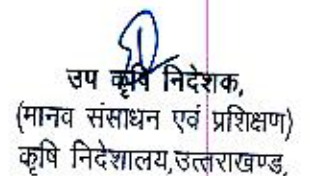 उप कृषि निदेशक,
(मानव संसाधन एवं प्रशिक्षण)
कृषि निदेशालय,उत्तराखण्ड,